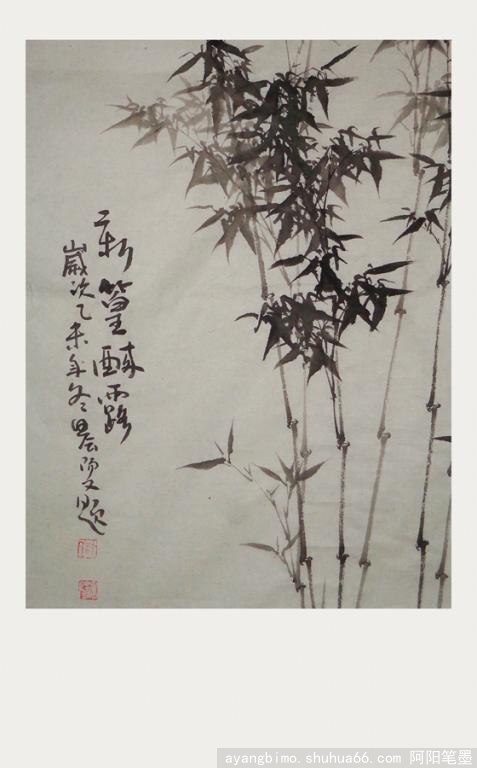 新篁酥露
歲次乙未年冬晨阳题
ayangbimo.shuhua66.com 阿阳笔墨